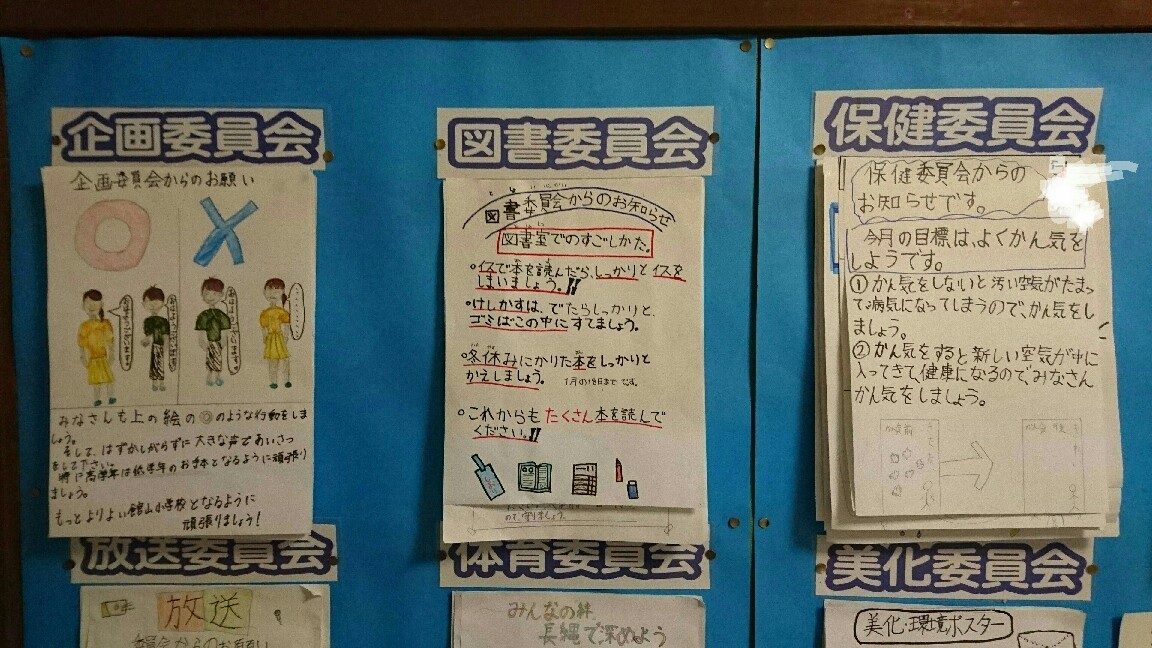 企画委員会
企画委員会からのお願い
みなさんも上の絵の◎のような行動をしま
しょう。
そして、はずかしがらずに大きな声であいさつ
をして下さい。
特に高学年は低学年のお手本となるように頑張り
ましょう。
もっとよりよい館山小学校となるように
頑張りましょう!
図書委員会
図書委員会からのお知らせ
図書室でのすごしかた。
・イスで本を読んだら、しっかりとイスを
しまいましょう。!!
・けしかすは、でたらしっかりと、
ゴミばこの中にすてましょう。
・冬休みにかりた本をしっかりと
かえしましょう。 1月の18日まで です。
・これからもたくさん本を読んで
ください。!!
ので、守りましょう。
保健委員会
保健委員会からの
お知らせです。
今月の目標は、よくかん気を
しようです。
①かん気をしないと汚い空気がたまっ
て病気になってしまうので、かん気をし
ましょう。
②かん気をすると新しい空気が中に
入ってきて、健康になるので、みなさん
かん気をしましょう。
放送委員会
放送
委員会からのお願い
体育委員会
みんなの絆
長縄で深めよう
美化委員会
美化・環境ポスター